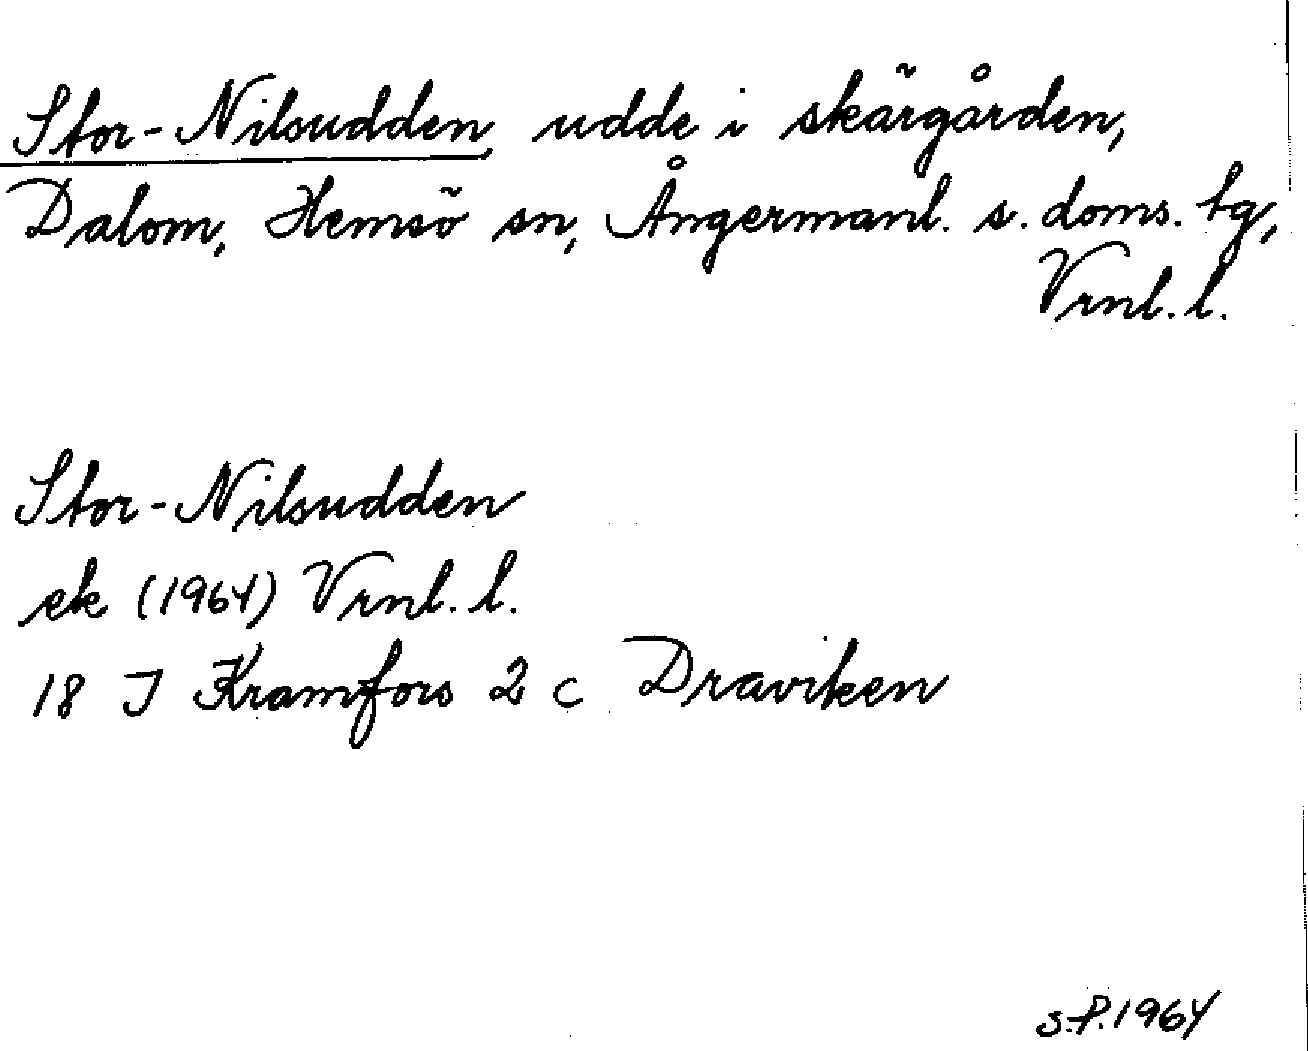 Stor-Nilsudden, udde i skärgården,
Dalom, Hemsö sn, Ångermanl. s. doms. tg,
Vrnl. l.
Stor-Nilsudden
ek (1964) Vrnl. l.
18 J Kramfors 2 c Draviken
S.P. 1964